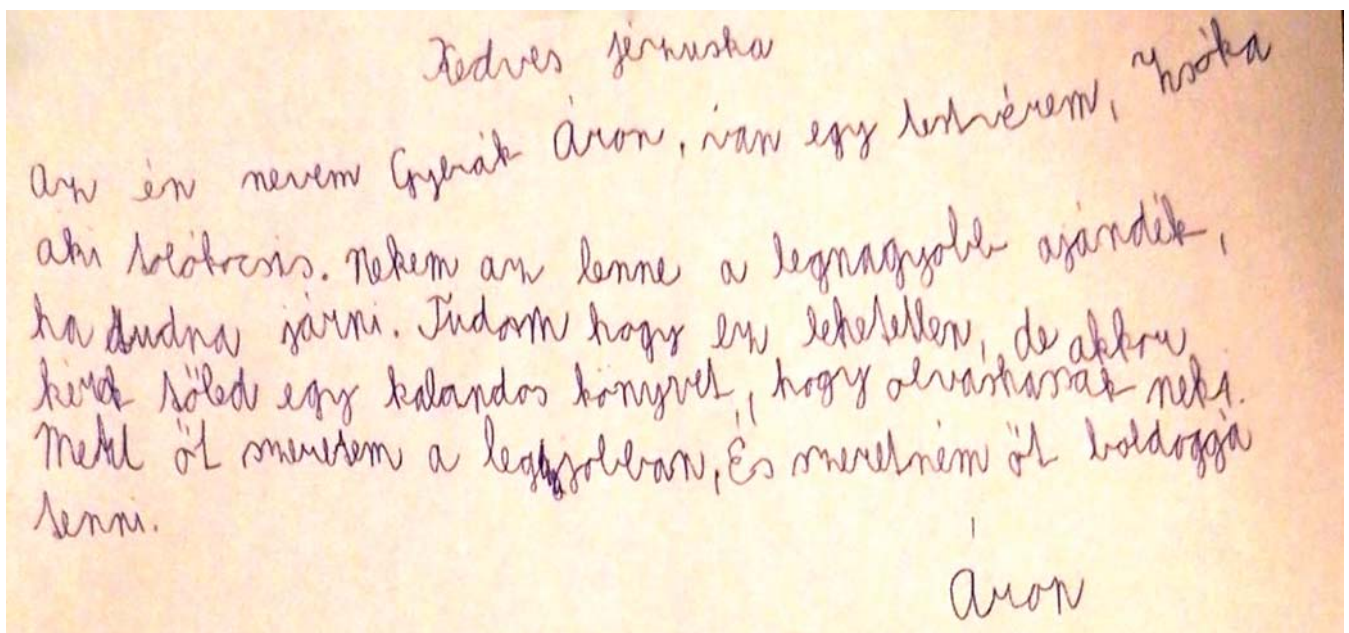 Kedves jézuska
Az én nevem Gyurák Áron, van egy testvérem, Zsóka
aki tolókocsis. Nekem az lenne a legnagyobb ajándék,
ha tudna járni. Tudom hogy ez lehetetlen, de akkor
kérek tőled egy kalandos könyvet, hogy olvashassak neki.
Mert őt szeretem a legjobban, És szeretném őt boldoggá
tenni.
Áron